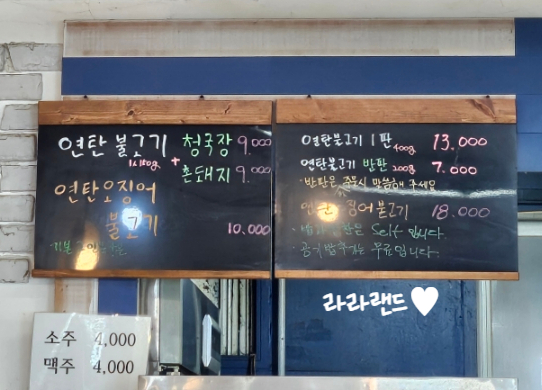 연탄 불고기 1人180g + 청국장 9.000
혼돼지 9.000
연탄오징어
불고기 10.000
연탄불고기 1판 400g 13.000
연탄불고기 반판 200g 7.000
·반판은 주문시 말씀해 주세요
오징어불고기 18.000
Self 입니다.
·공기밥추가는 무료입니다.
라라랜드♥
소주 4,000
맥주 4,000